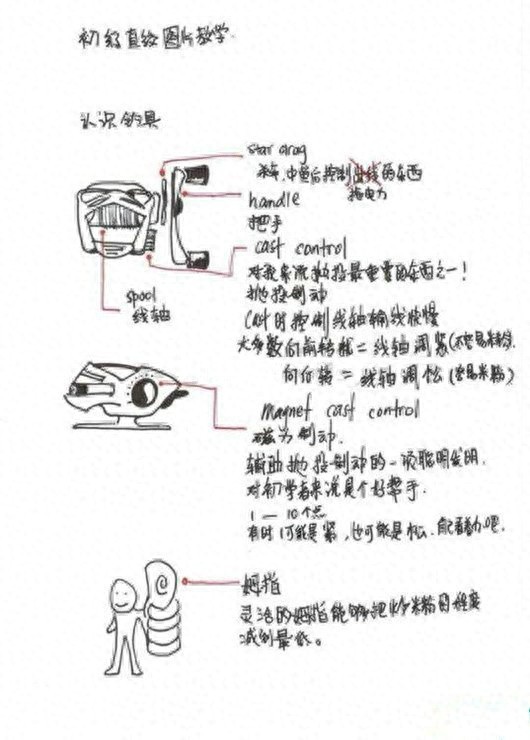 初级直绘图片教学
认识钓具
star drag
中鱼后控制出线的东西
拖曳力
handle
把手
cast control
对我来说抛投最重要的东西之一!
抛投制动
cast时控制线轴输线快慢
大多数向前转机=线轴调紧(不容易米粉)
向后转=线轴调松(容易米粉)
spool
线轴
magnet cast control
磁力制动.
辅助抛投制动的一项聪明发明.
对初学者来说是个好帮手.
1—10个点
有时1可能是紧,也可能是松.自己看着办吧.
姆指
灵活的姆指能够把炒米粉的程度
减到最低。